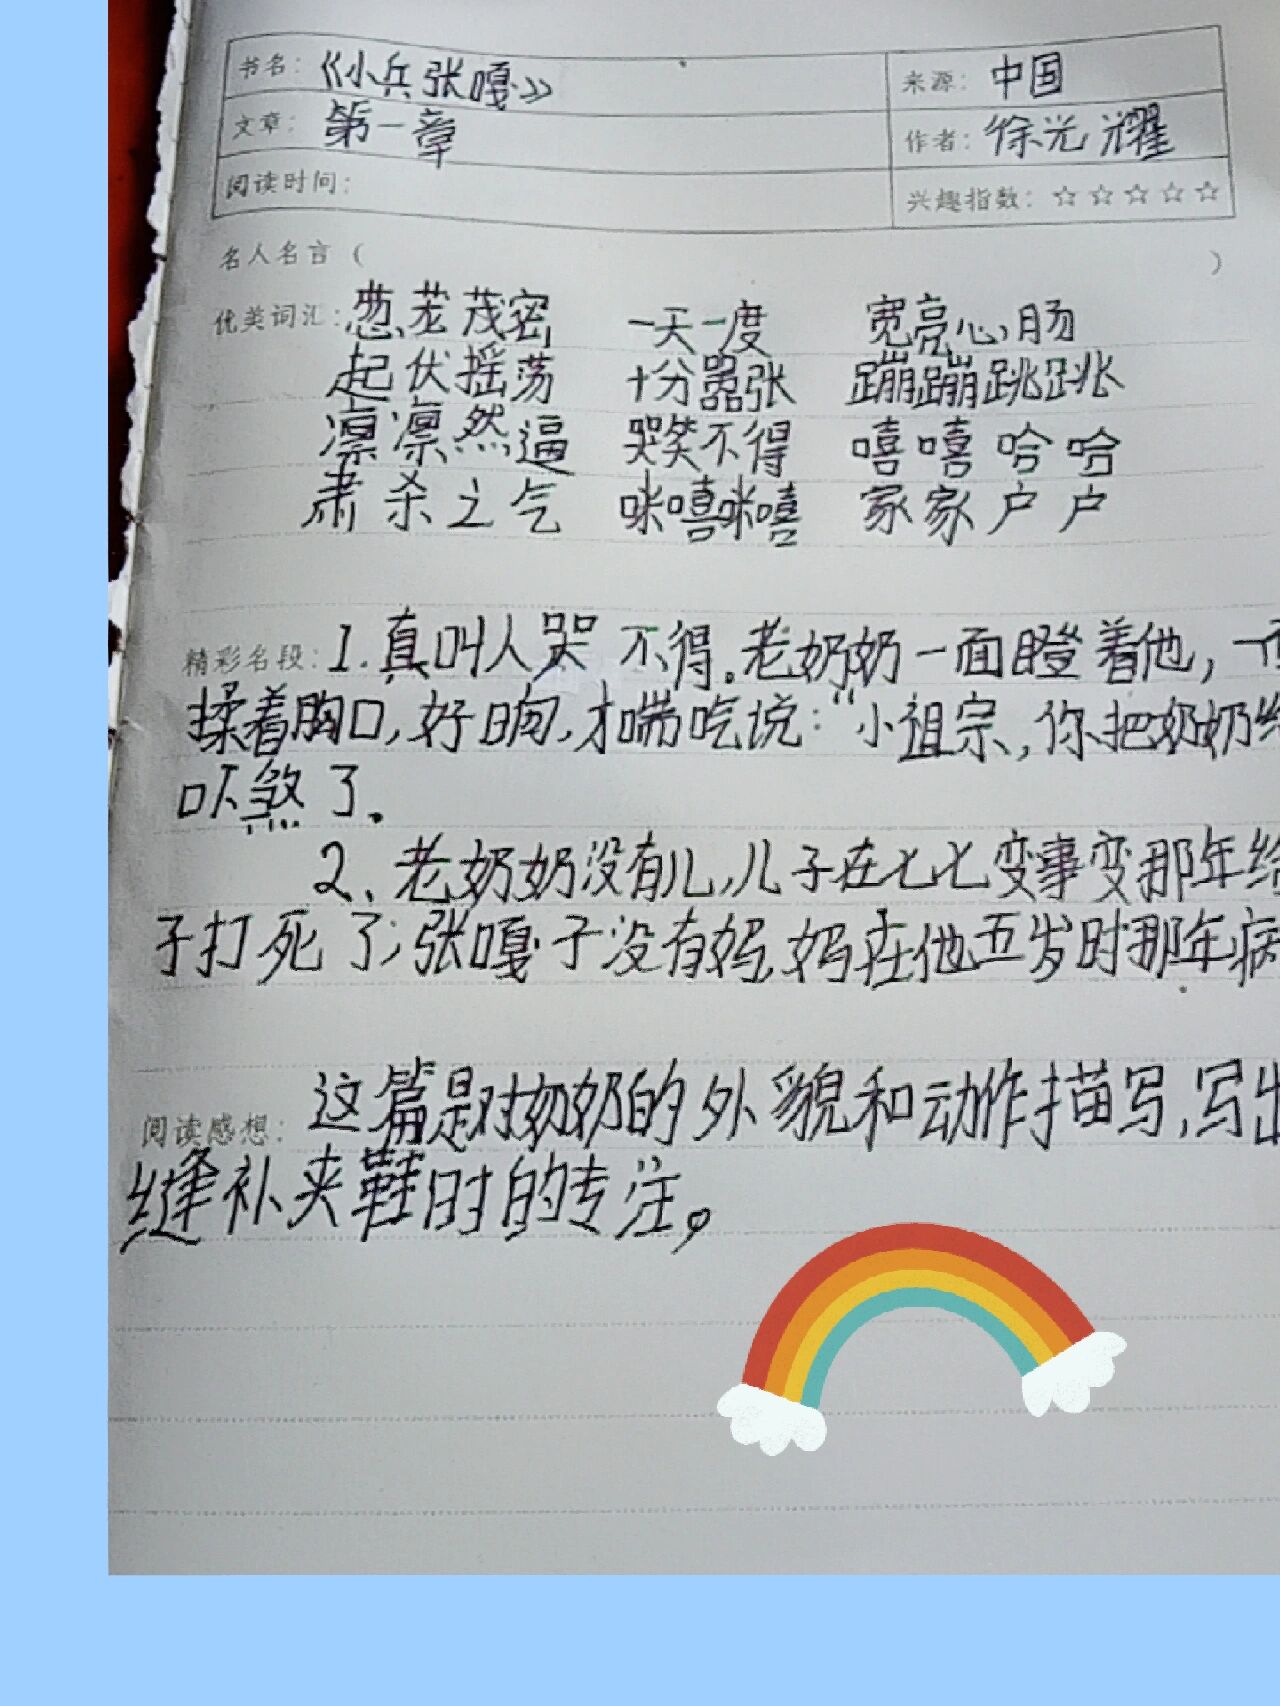 书名：《小兵张嘎》 来源：中国
文章：第一章 作者：徐光耀
阅读时间： 兴趣指数：☆☆☆☆☆
名人名言（ ）
优美词汇：葱茏茂密 一天一度 宽亮心肠
起伏摇荡 十分嚣张 蹦蹦跳跳
凛凛然逼 哭笑不得 嘻嘻哈哈
肃杀之气 咪嘻咪嘻 家家户户
精彩名段：1.真叫人哭不得。老奶奶一面瞪着他，一
揉着胸口，好晌，才喘吃说：“小祖宗，你把奶奶
吓煞了。
2、老奶奶没有儿，儿子在七七变事变那年给
子打死了；张嘎子没有妈，妈在他五岁时那年病
阅读感想：这篇是对奶奶的外貌和动作描写，写出
缝补夹鞋时的专注。